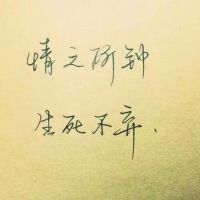 情之所钟
生死不弃.